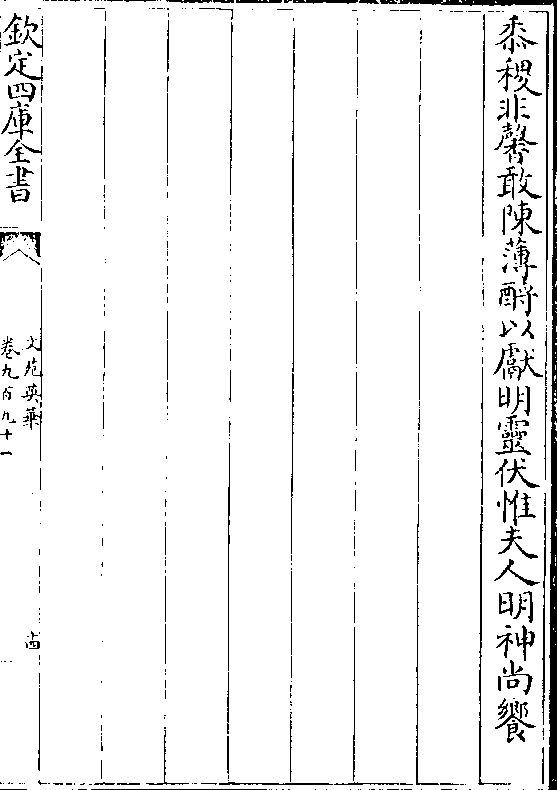 黍稷非馨敢陳薄酹以獻明靈伏惟夫人明神尚饗
欽定四庫全書
文苑英華
卷九百九十一
十四